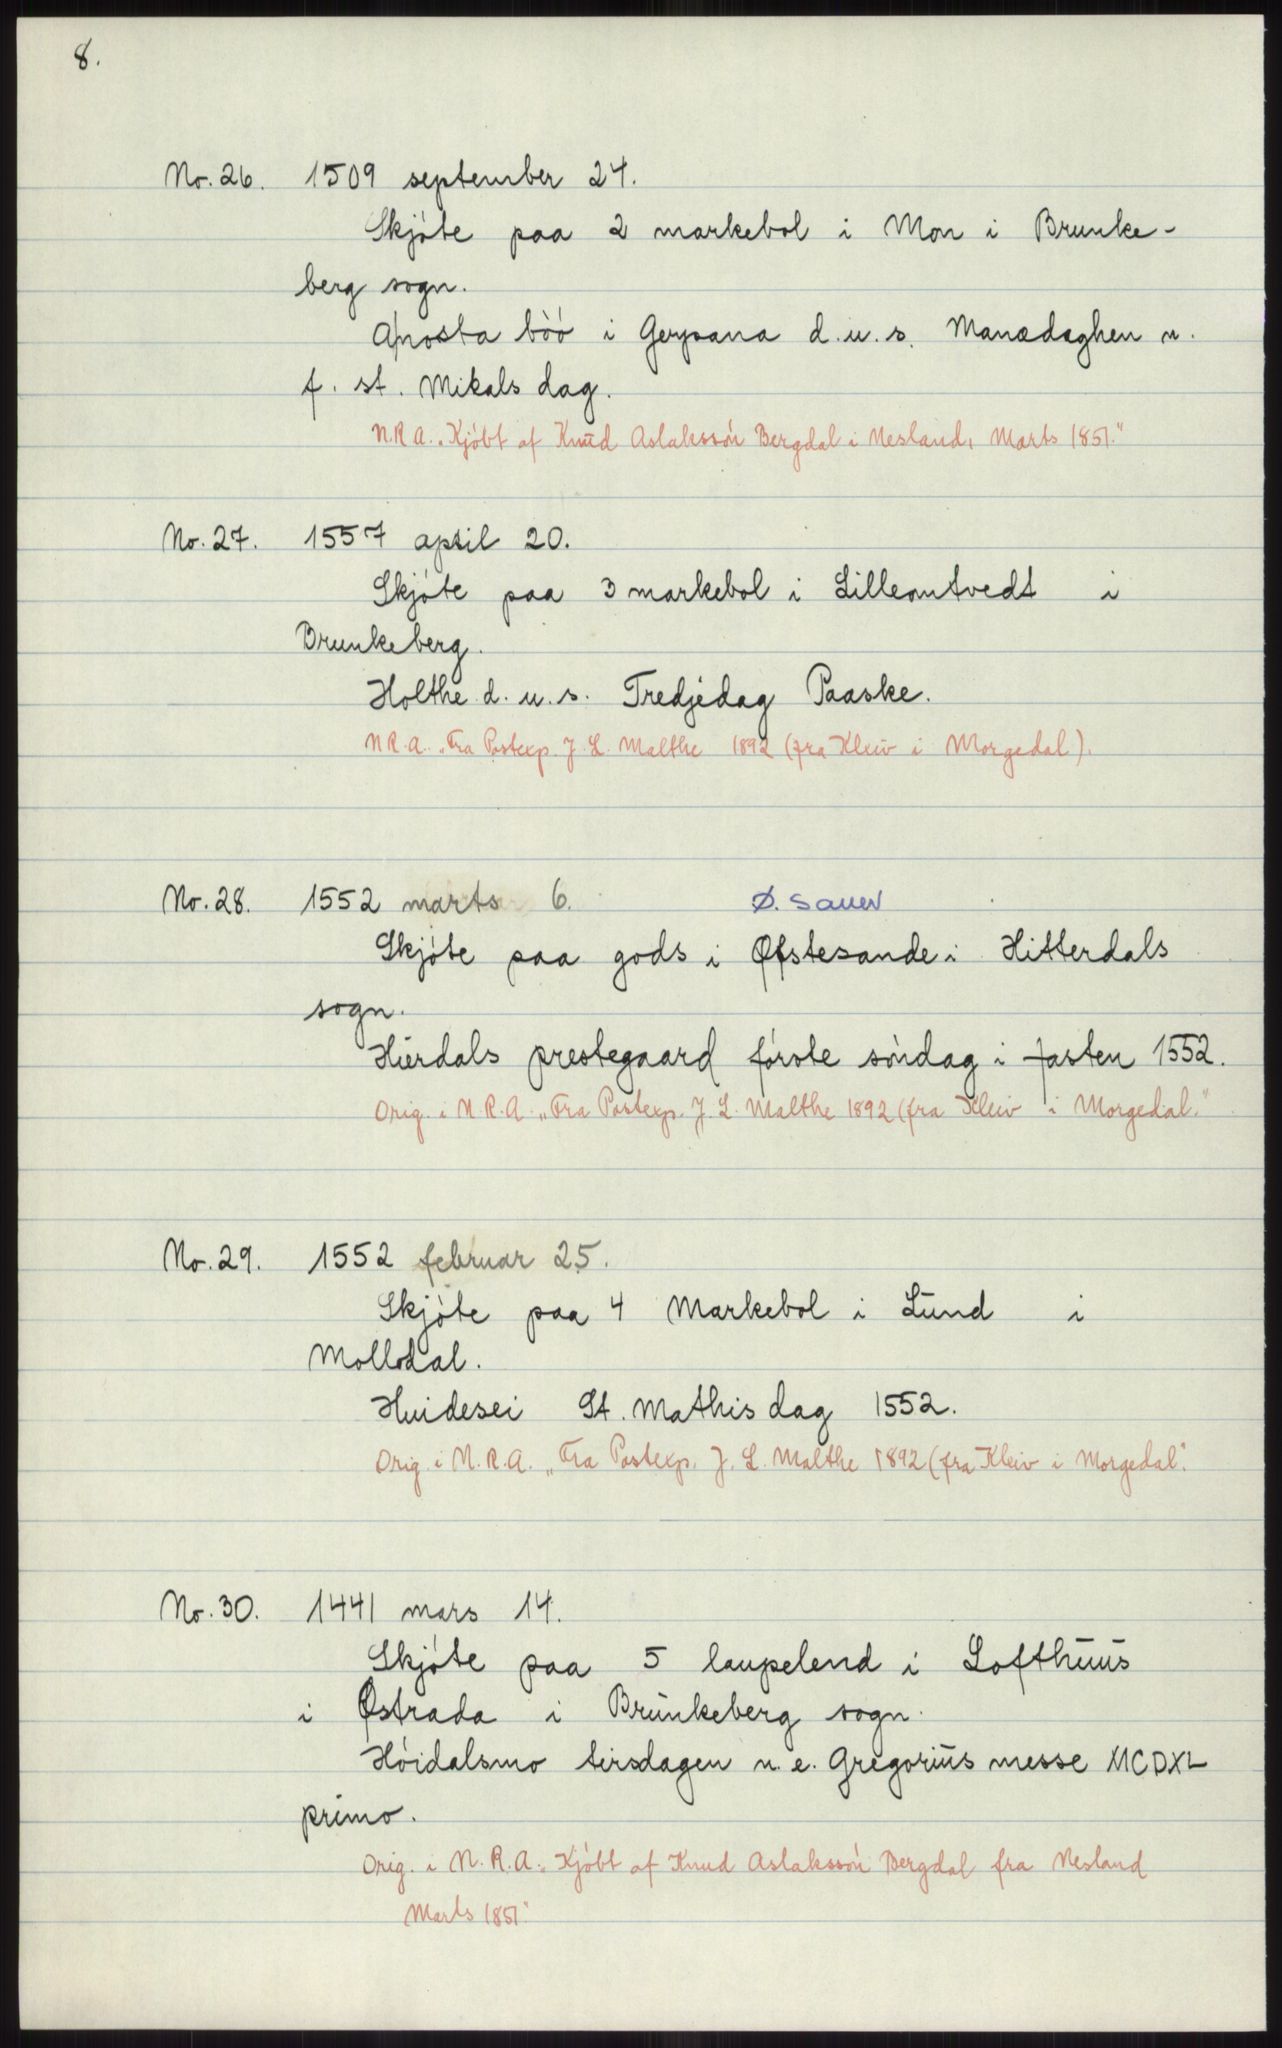 8.
No. 26. 1509 september 24.
Skjóte paa 2 markebol i Mon i Brunke-
berg sogn.
i Gerpsana d.u.s. Manædaghen n.
f. st. Mikals dag.
N.R.A. „Kjóbt af Knud Aslakssón Bergdal i Nesland, Marts 1851."
No. 27. 1557 april 20.
Skjóte paa 3 markebol i Lilleomtvedt i
Brunkeberg.
Holthe d. u. s. Tredjedag Paaske.
N.R.A. „Fra Postexp. J. L. Malthe 1892 (fra Kleiv i Morgedal).
No. 28. 1552 marts 6. Ø. Sauer
Skjóte paa gods i Øfstesande i Hitterdals
sogn.
Hierdals prestegaard fórste sóndag i fasten 1552.
Orig. i N.R.A. „Fra Postexp. J. L. Malthe 1892 (fra Kleiv i Morgedal."
No. 29. 1552 februar 25.
Skjóte paa 4 Markebol i Lund i
Molldal.
Huidesei St. Mathis dag 1552.
Orig. i N.R.A. „Fra Postexp. J. L. Malthe 1892 (fra Kleiv i Morgedal."
No. 30. 1441 mars 14.
Skjóte paa 5 laupelend i Lofthuus
i Østrada i Brunkeberg sogn.
Hóidalsmo tirsdagen n. e. Gregorius messe MCDXL
primo.
Orig. i N.R.A. „Kjóbt af Knud Aslakssón Bergdal fra Nesland
Marts 1851."